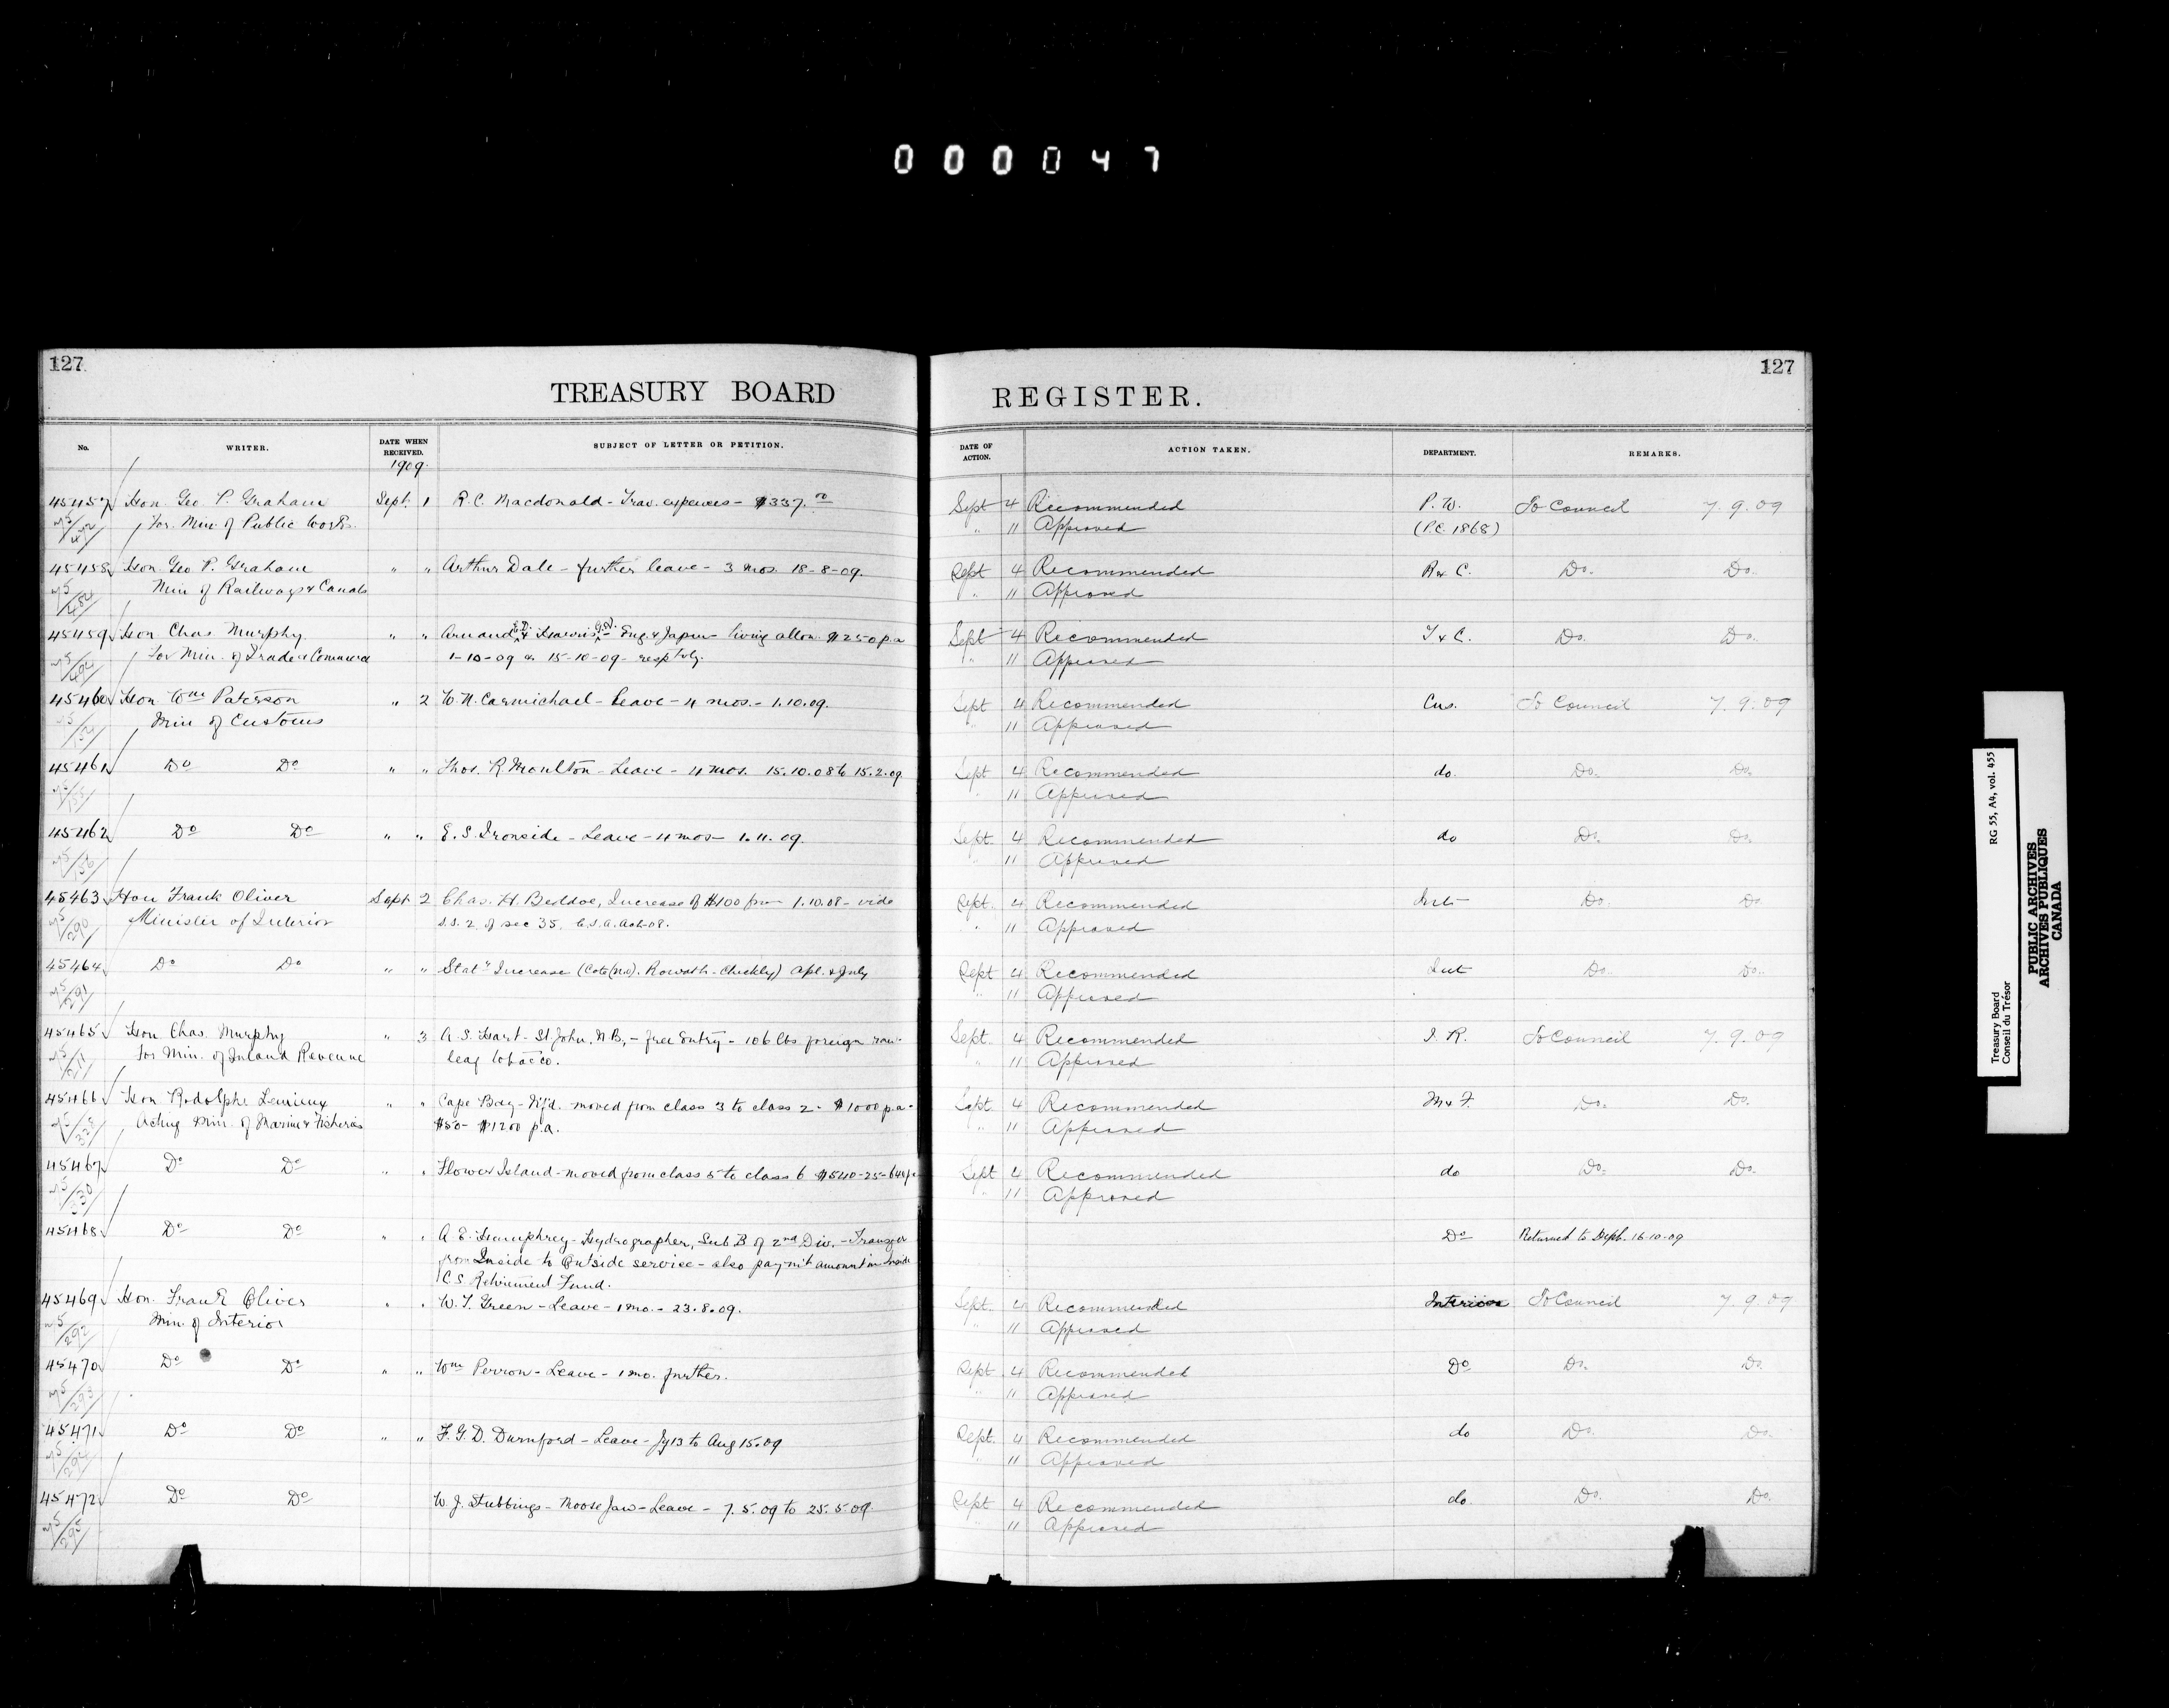 000047
127
127
TREASURY BOARD REGISTER.
No. WRITER. DATE WHEN RECEIVED. SUBJECT OF LETTER OR PETITION. DATE OF ACTION. ACTION TAKEN. DEPARTMENT. REMARKS.
1909.
45457 Hon. Geo P. Graham Sept. 1 R.C. Macdonald - Trav. expenses - $337. Sept 4 Recommended P. W. To Council 7.9.09
for. Min. of Public Works. " 11 Approved (P.C. 1868)
45458 Hon. Geo P. Graham " " Arthur Dale - further leave - 3 mos. 18-8-09. Sept 4 Recommended R & C. Do. Do.
Min of Railways & Canals " 11 Approved
45459 Hon Chas Murphy " " Arnaud E.D. & Harris - Eng. & Japan - living allow. $250 p.a Sept 4 Recommended T & C. Do. Do.
for Min. of Trade & Commerce 1-10-09 & 15-10-09 - resptvly. " 11 Approved
45460 Hon. Wm Paterson " 2 W.N. Carmichael - Leave - 4 mos. - 1.10.09. Sept 4 Recommended Cus. To Council 7.9.09
Min of Customs " 11 Approved
45461 Do Do " " Thos. R Moulton - Leave - 4 mos. 15.10.08 to 15.2.09 Sept 4 Recommended do. Do. Do.
" 11 Approved
45462 Do Do " " E. S. Ironside - Leave - 4 mos - 1.11.09. Sept. 4 Recommended do Do. Do.
" 11 Approved
45463 Hon Frank Oliver Sept 2 Chas. H. Beddoe, Increase of $100 from 1.10.08 - vide Sept. 4 Recommended Int Do. Do
Minister of Interior S.S. 2 of sec 35, C.S.A. Act-08. " 11 Approved
45464 Do Do " " Stat" Increase (Cote (N.O). Rowath - Chickly) Apl. & July Sept 4 Recommended Int Do. Do.
/291 " 11 Approved
45465 Hon Chas. Murphy " 3 A. S. Hart - St John, N B, - free entry - 106 lbs foreign raw Sept. 4 Recommended I. R. To Council 7.9.09
for Min. of Inland Revenue leaf tobacco. " 11 Approved
45466 Hon Rodolphe Lemieux " " Cape Bay - Nfd. moved from class 3 to class 2 - $1000 p.a - Sept. 4 Recommended M & F. Do. Do.
Acting Min. of Marine & Fisheries $50 - $1200 p.a. " 11 Approved
45467 Do Do " " Flower Island - moved from class 5 to class 6 $540-25-648 Sept 4 Recommended do Do. Do.
" 11 Approved
45468 Do Do " " A. E. Humphrey - Hydrographer, Sub. B of 2nd Div. - Transfer Do Returned to Dept. 16-10-09
from Inside to Outside service - also paymt amount in Inside
C.S Retirement Fund.
45469 Hon. Frank Oliver " " W. T. Green - Leave - 1 mo. - 23.8.09. Sept. 4 Recommended Interior To Council 7.9.09
Min. of Interior " 11 Approved
/292
45470 Do Do " " Wm Perron - Leave - 1 mo. further. Sept 4 Recommended Do Do. Do.
/293 " 11 Approved
45471 Do Do " " F. G. D. Durnford - Leave - Jy 13 to Aug 15.09 Sept. 4 Recommended do Do. Do.
/294 " 11 Approved
45472 Do Do W. J. Stubbings - Moose Jaw - Leave - 7.5.09 to 25.5.09 Sept 4 Recommended do. Do. Do.
/295 " 11 Approved
Treasury Board RG 55, A4, vol. 455
Conseil du Trésor
PUBLIC ARCHIVES
ARCHIVES PUBLIQUES
CANADA